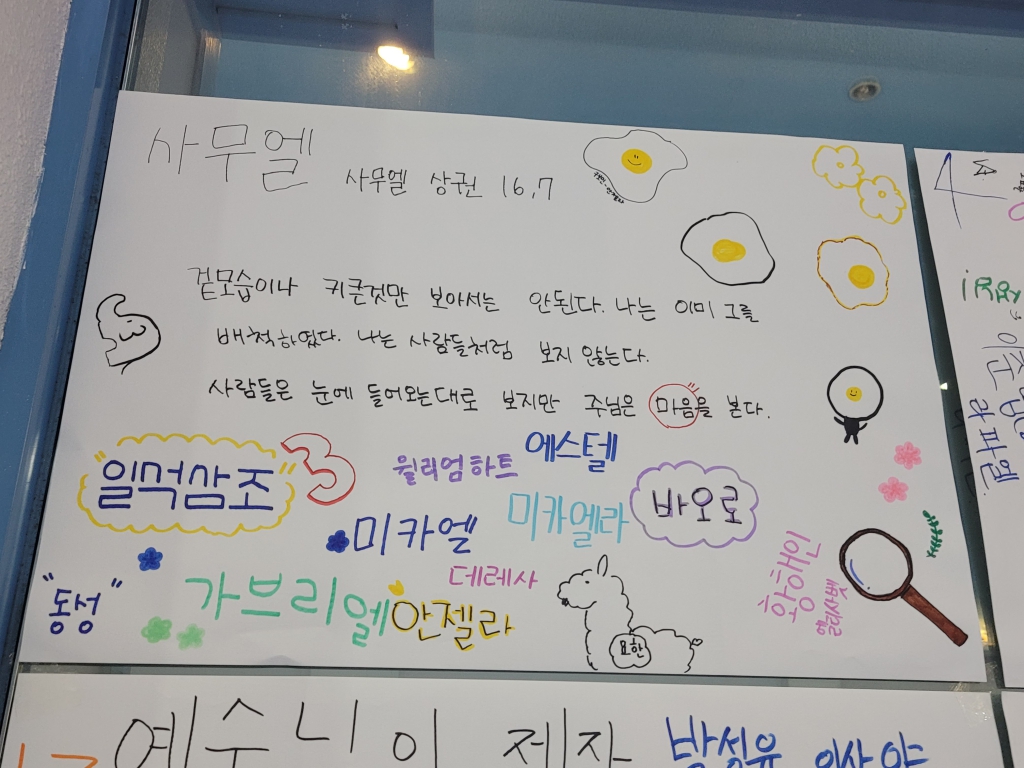 사무엘
사무엘 상권 16,7
겉모습이나 키큰것만 보아서는 안된다. 나는 이미 그를
배척하였다. 나는 사람들처럼 보지 않는다.
사람들은 눈에 들어오는대로 보지만 주님은 "마음"을 본다.
"일먹삼조" 3
윌리엄하트
에스텔
미카엘
미카엘라
바오로
"동성"
가브리엘
데레사
안젤라
요한
황해인
엘리사벳
이준
라파엘.
예수니이 제자